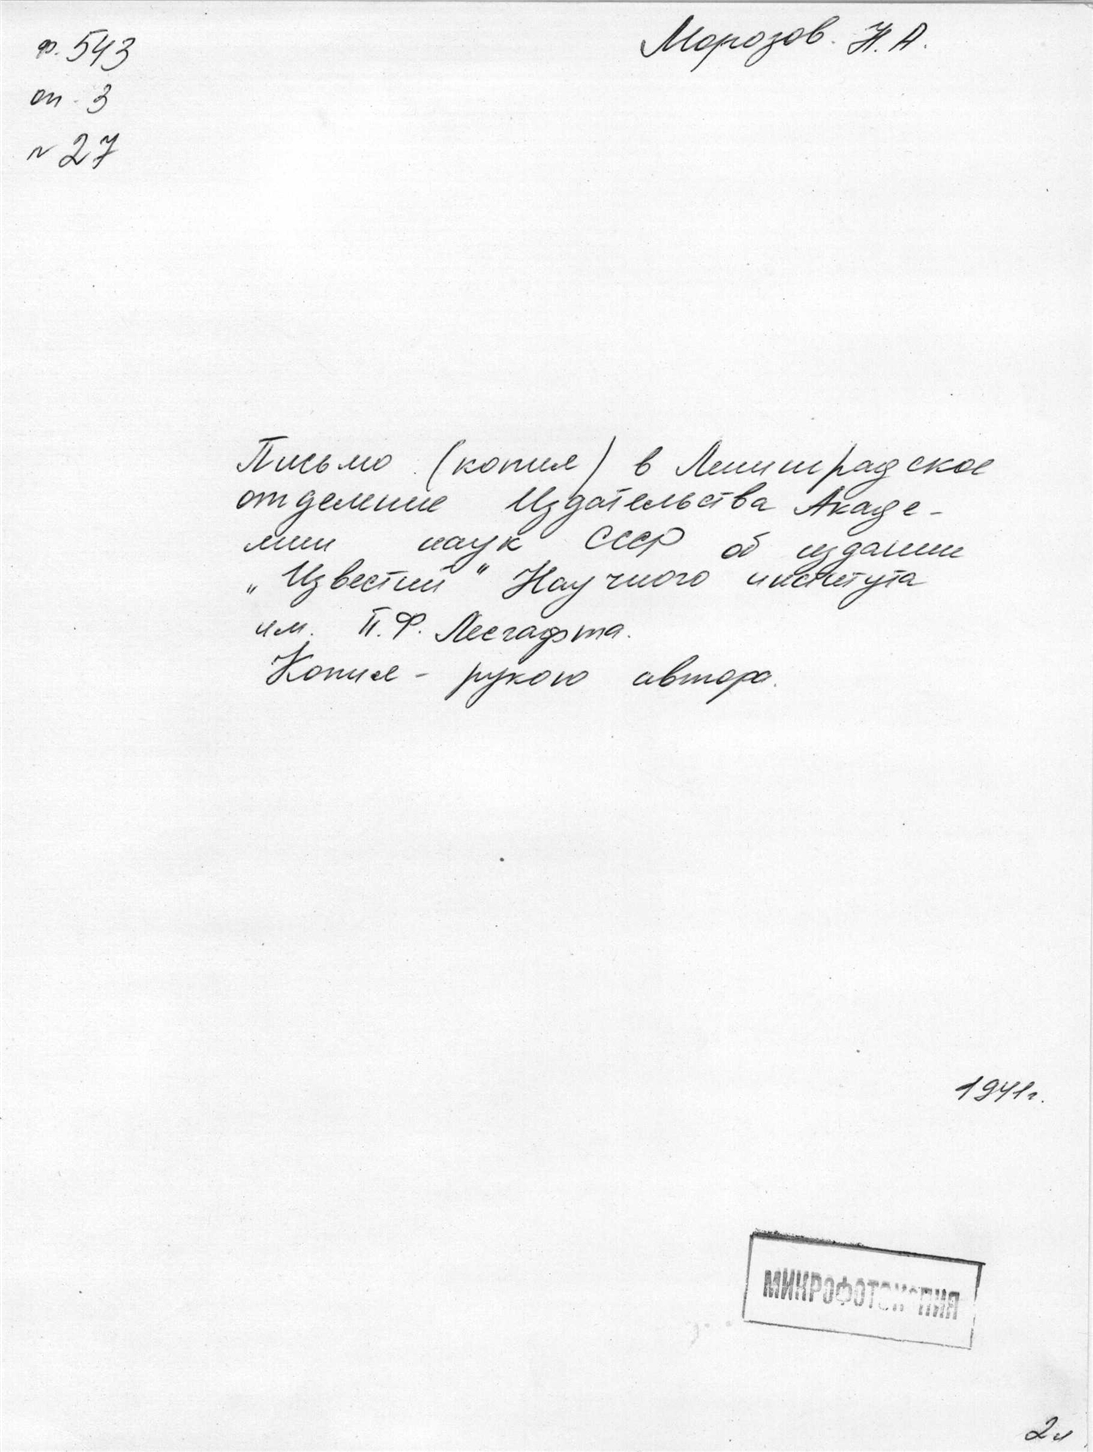 ф. 543
оп. 3
№ 27
Морозов. Н. А.
Письмо (копия) в Ленинградское
отделение Издательства Акаде-
мии наук СССР об издании
„Известий" Научного института
им. П. Ф. Лесгафта.
Копия - рукою автора.
1941г.
МИКРОФОТОКОПИЯ
2л